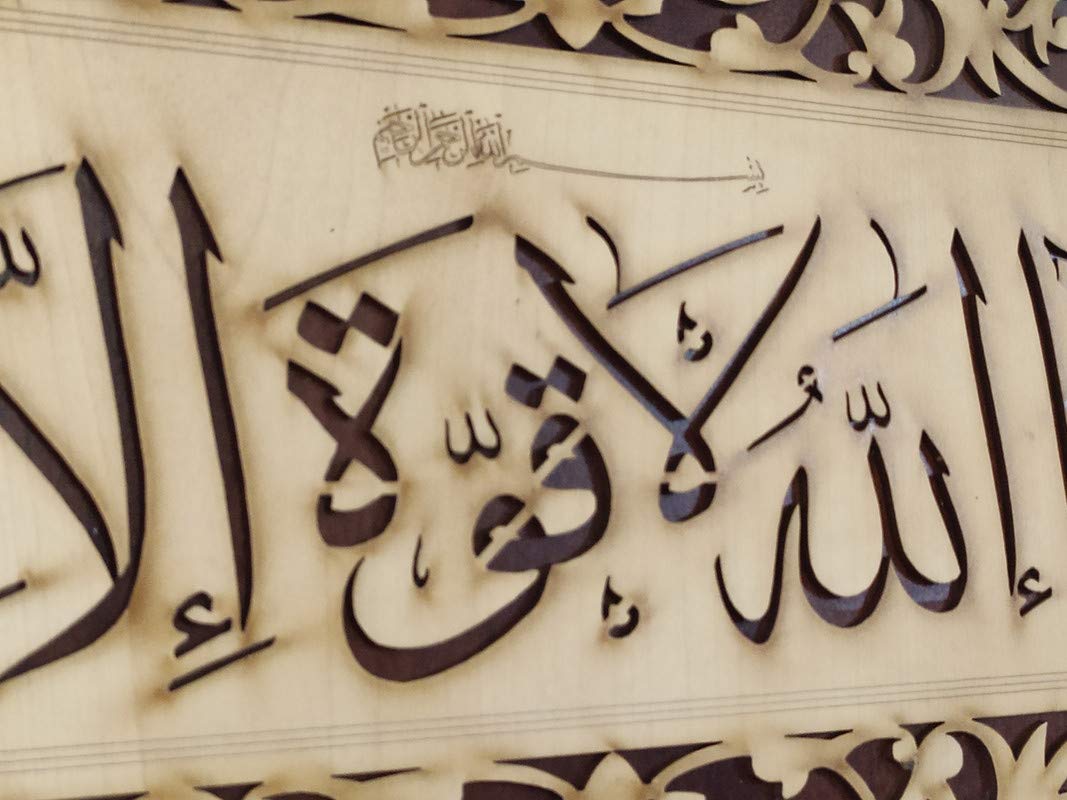 بسم الله الرحمن الرحيم
اللهُ لَا قُوَّةَ إِلَّا